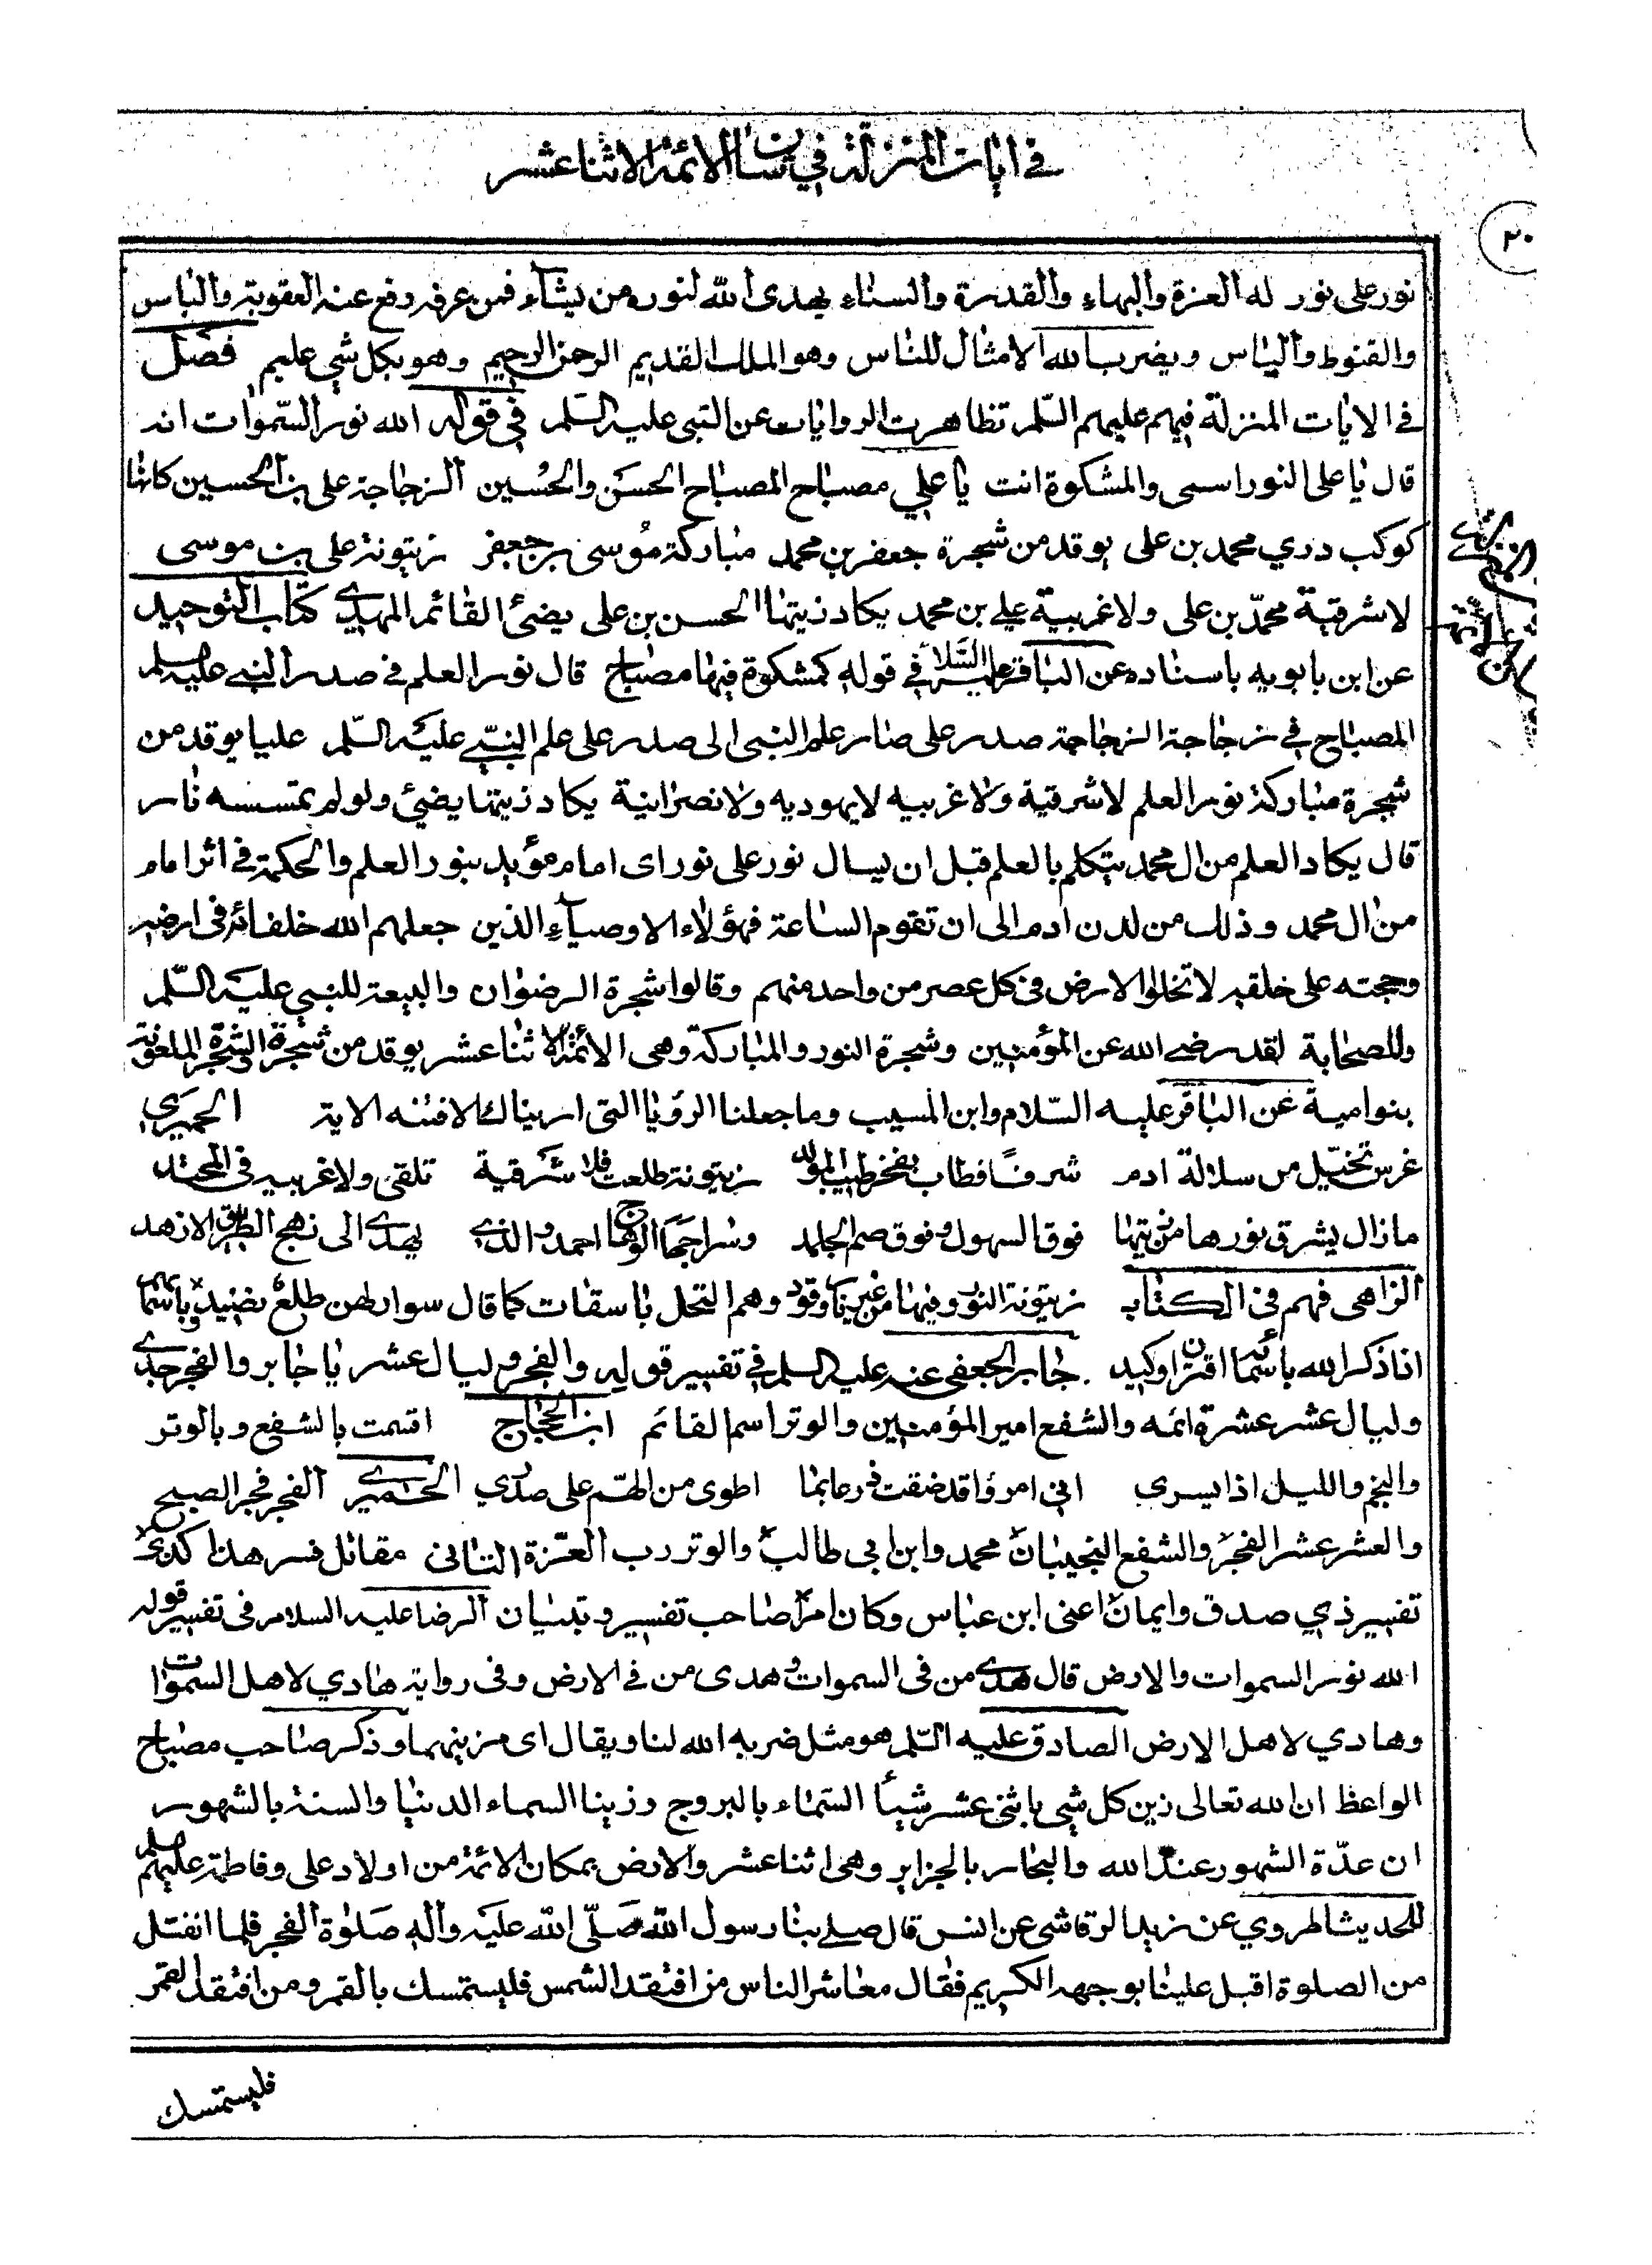 في ايات المنزلة في شان الائمة الاثنا عشر
٢٠
نور على نور له العزة والبهاء والقدرة والسناء يهدى الله لنوره من يشاء فمن عرفه دفع عنه العقوبة والباس
والقنوط والياس ويضرب الله الامثال للناس وهو الملك القديم الرحمن الرحيم وهو بكل شي عليم فصل
في الايات المنزلة فيهم عليهم السّلم تظاهرت الروايات عن النبى عليه السّلم في قوله الله نور السّموات انه
قال يا على النور اسمى والمشكوة انت يا علي مصباح المصباح الحسن والحسين الزجاجة على بن الحسين كانها
كوكب دري محمد بن على يوقد من شجرة جعفر بن محمد مباركة موسى بن جعفر زيتونة على بن موسى
لا شرقية محمّد بن على ولا غربية علي بن محمد يكاد زيتها الحسن بن على يضئ القائم المهدي كتاب التوحيد
عن ابن بابويه باسناده عن الباقر عليه السّلام في قوله كمشكوة فيها مصباح قال نور العلم في صدر النبي عليه السلم
المصباح في زجاجة الزجاجة صدر على صار علم النبى الى صدر على علم النبي عليه السّلم عليا يوقد من
شجرة مباركة نور العلم لا شرقية ولا غربيه لا يهوديه ولا نصرانية يكاد زيتها يضئ ولو لم تمسسه نار
قال يكاد العلم من ال محمد يتكلم بالعلم قبل ان يسال نور على نور اى امام مؤيد بنور العلم والحكمة في اثر امام
من ال محمد وذلك من لدن ادم الى ان تقوم الساعة فهؤلاء الاوصياء الذين جعلهم الله خلفائه فى ارضه
وحجته على خلقه لا تخلوا الارض فى كل عصر من واحد منهم وقالوا شجرة الرضوان والبيعة للنبي عليه السّلم
وللصحابة لقد رضي الله عن المؤمنين وشجرة النور والمباركة وهى الائمة الاثنا عشر يوقد من شجرة والشجرة الملعونة
بنو امية عن الباقر عليه السّلام وابن المسيب وما جعلنا الرؤيا التى اريناك الا فتنه الاية الحميري
غرس نخيل من سلالة ادم شرفًا فطاب بفخر طيب المولد زيتونة طلعت فلا شرقية تلقى ولا غربيه فى المحتد
مازال يشرق نورها من زيتها فوق السهول وفوق صم الجلمد وسراجها الوهاج احمد والذي يهدي الى نهج الطريق الازهد
الزاهى فهم فى الكتاب زيتونة النور وفيها من غير نار وقود وهم النخل باسقات كما قال سوار لهن طلع نضيد وباسمائهم
اذا ذكر الله باسمائه اقتران اوكيد جابر الجعفى عنه عليه السلم في تفسير قوله والفجر وليال عشر يا جابر والفجر جدي
وليال عشر عشرة ائمه والشفع امير المؤمنين والوتر اسم القائم ابن الحجاج اقسمت بالشفع وبالوتر
والنجم والليل اذا يسرى انى امرؤ قد ضقت ذرعا بما اطوى من الهم على صدري الحميري الفجر فجر الصبح
والعشر عشر الفجر والشفع النجيبان محمد وابن ابي طالب والوتر رب العزة الثانى مقاتل فسر هذا كذى
تفسير ذي صدق وايمان اعنى ابن عباس وكان امرًا صاحب تفسير وتبيان الرضا عليه السلام فى تفسير قوله
الله نور السموات والارض قال هدى من فى السموات وهدى من في الارض وفى رواية هادي لاهل السموات
وهادي لاهل الارض الصادق عليه السّلم هو مثل ضربه الله لنا ويقال اى مزينهما وذكر صاحب مصباح
الواعظ ان الله تعالى زين كل شي باثنى عشر شيأ السّماء بالبروج وزينا السماء الدنيا والسنة بالشهور
ان عدّة الشهور عند الله والبحار بالجزاير وهى اثنا عشر والارض بمكان الائمة من اولاد على وفاطمة عليهم السلم
للحديث المروي عن زيد الرقاشى عن انس قال صلى بنا رسول الله صلّى الله عليه واله صلوة الفجر فلما انفتل
من الصلوة اقبل علينا بوجهه الكريم فقال معاشر الناس من افتقد الشمس فليستمسك بالقمر ومن افتقد القمر
فليستمسك